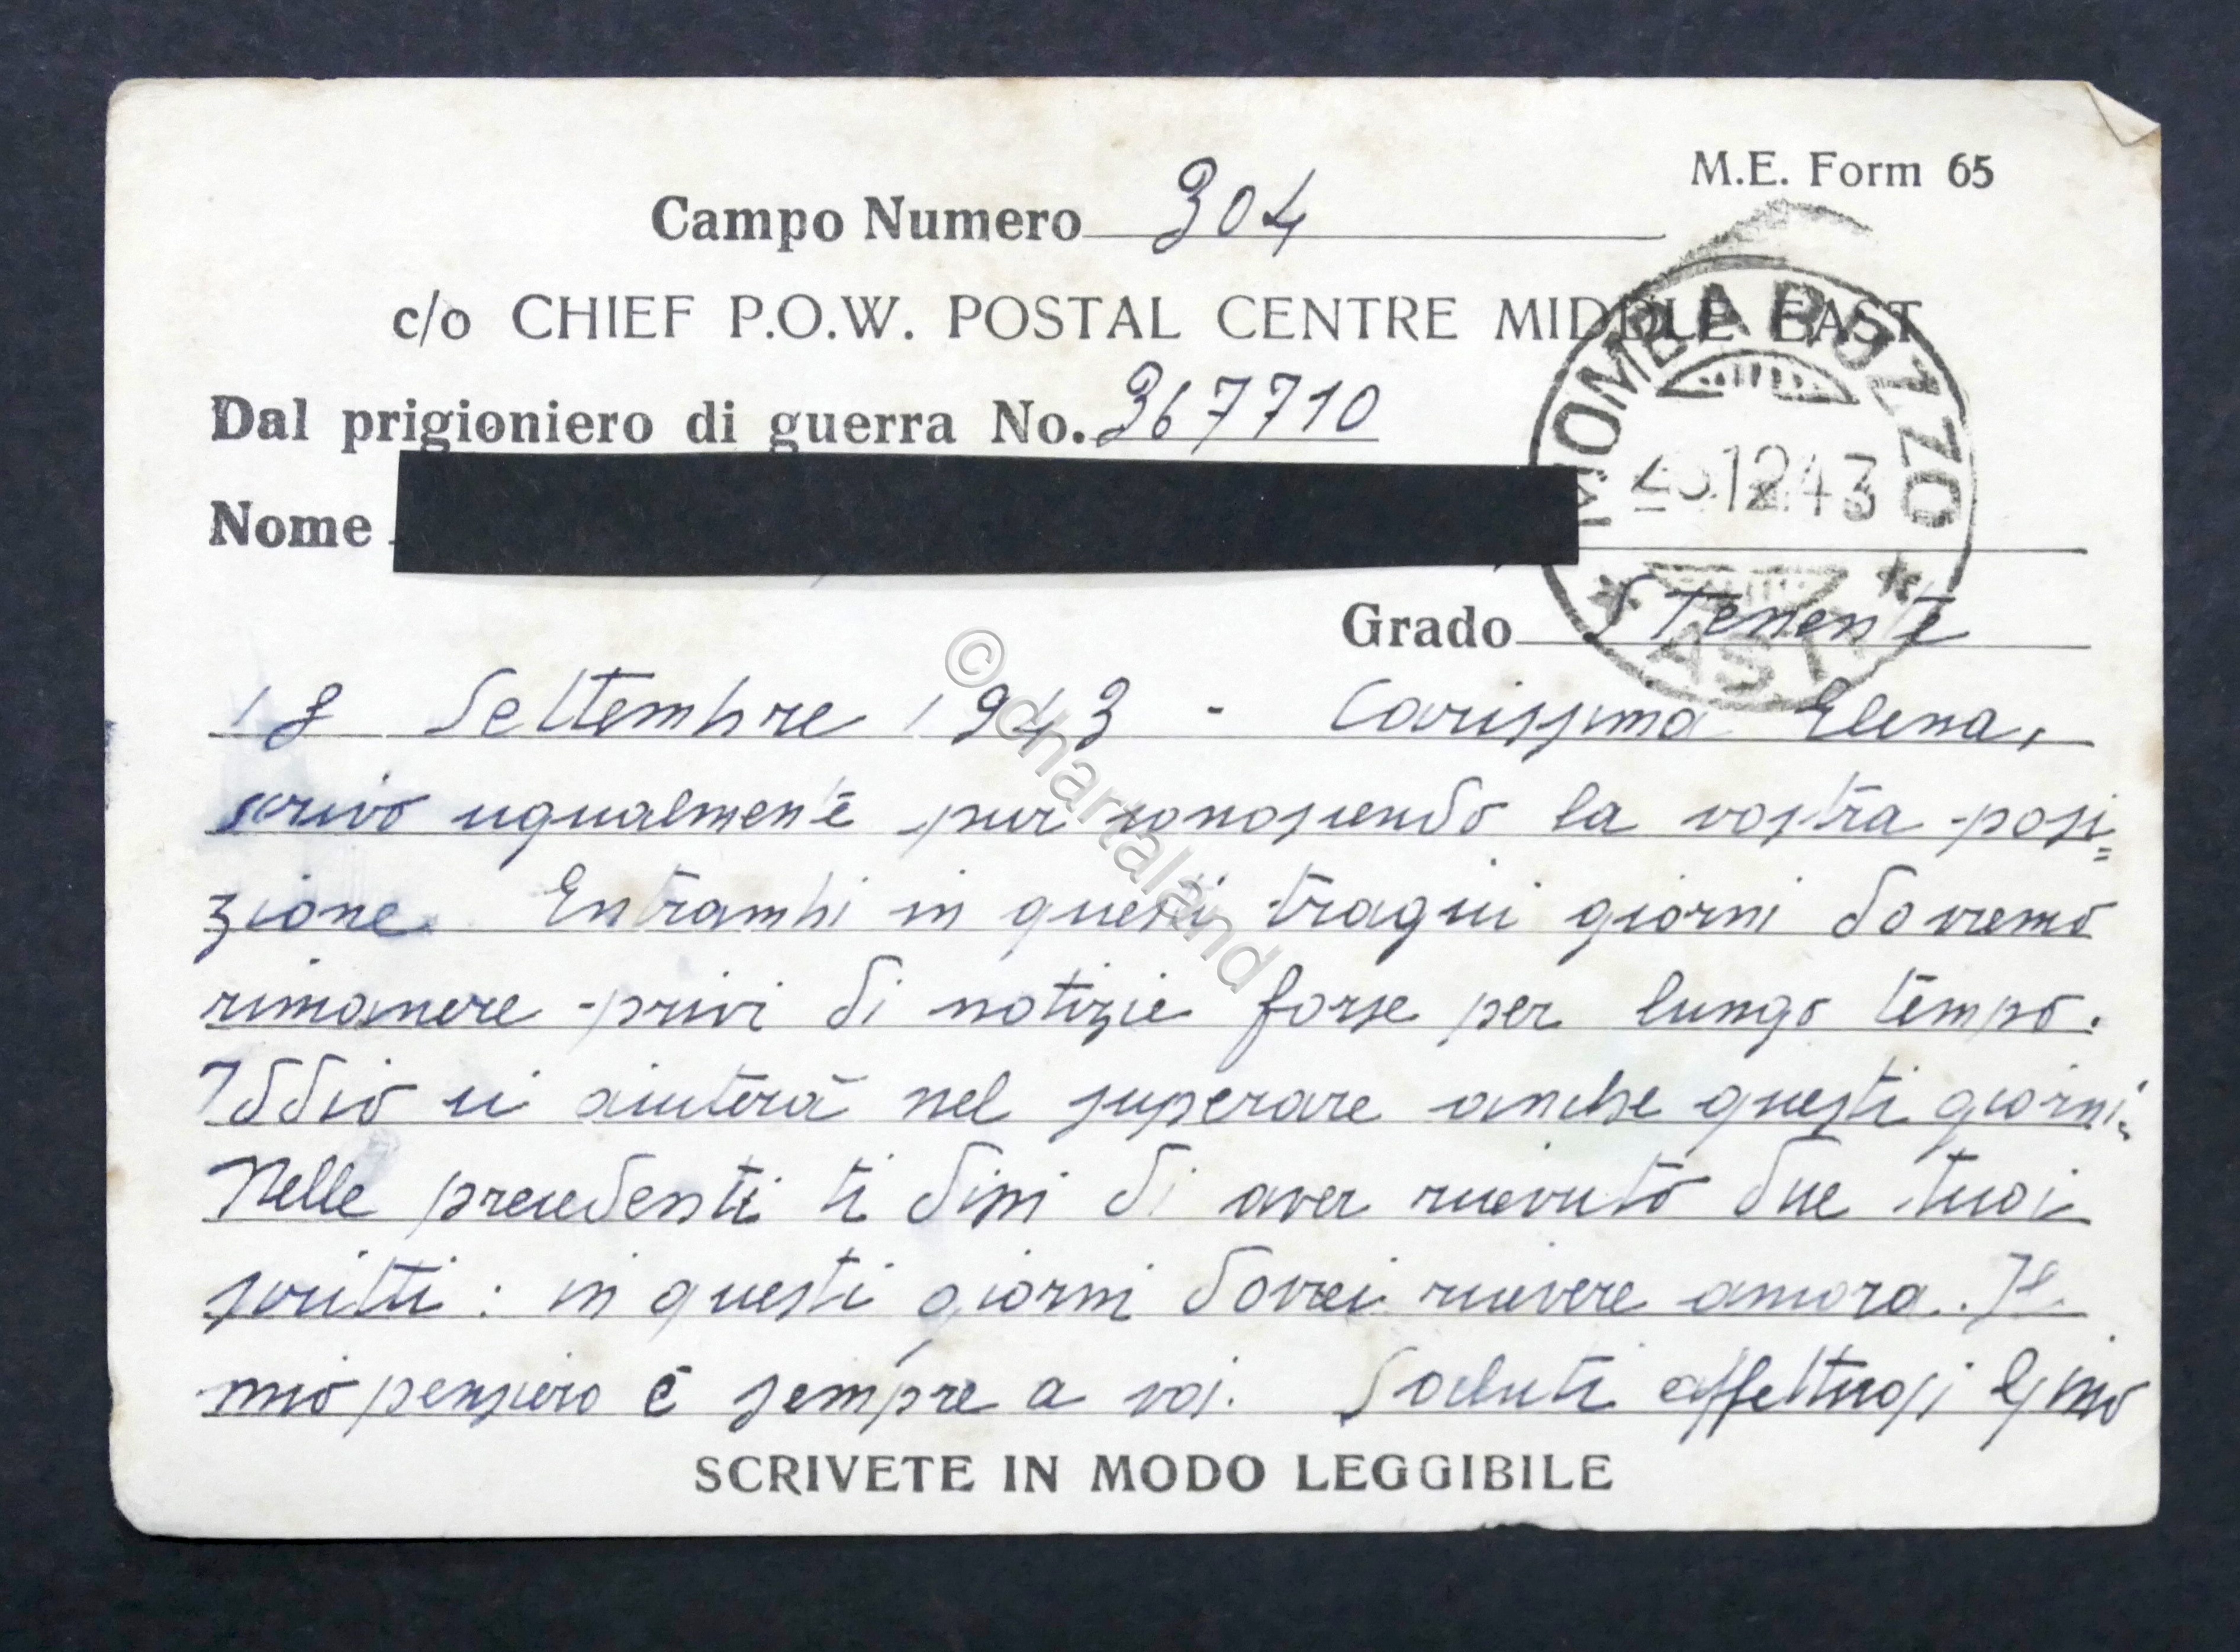 M.E. Form 65
Campo Numero 304
c/o CHIEF P.O.W. POSTAL CENTRE MIDDLE EAST
Dal prigioniero di guerra No. 367710
Nome
MOMBARUZZO
12.43
ASTI
Grado STenente
18 Settembre 1943 - Carissima Elena,
scrivo ugualmente pur conoscendo la vostra posi=
zione. Entrambi in questi tragici giorni dovremo
rimanere privi di notizie forse per lungo tempo.
Iddio ci aiuterà nel superare anche questi giorni.
Nelle precedenti ti dissi di aver ricevuto due tuoi
scritti: in questi giorni dovrei ricevere ancora. Il
mio pensiero è sempre a voi. Saluti affettuosi
SCRIVETE IN MODO LEGGIBILE
© chartaland